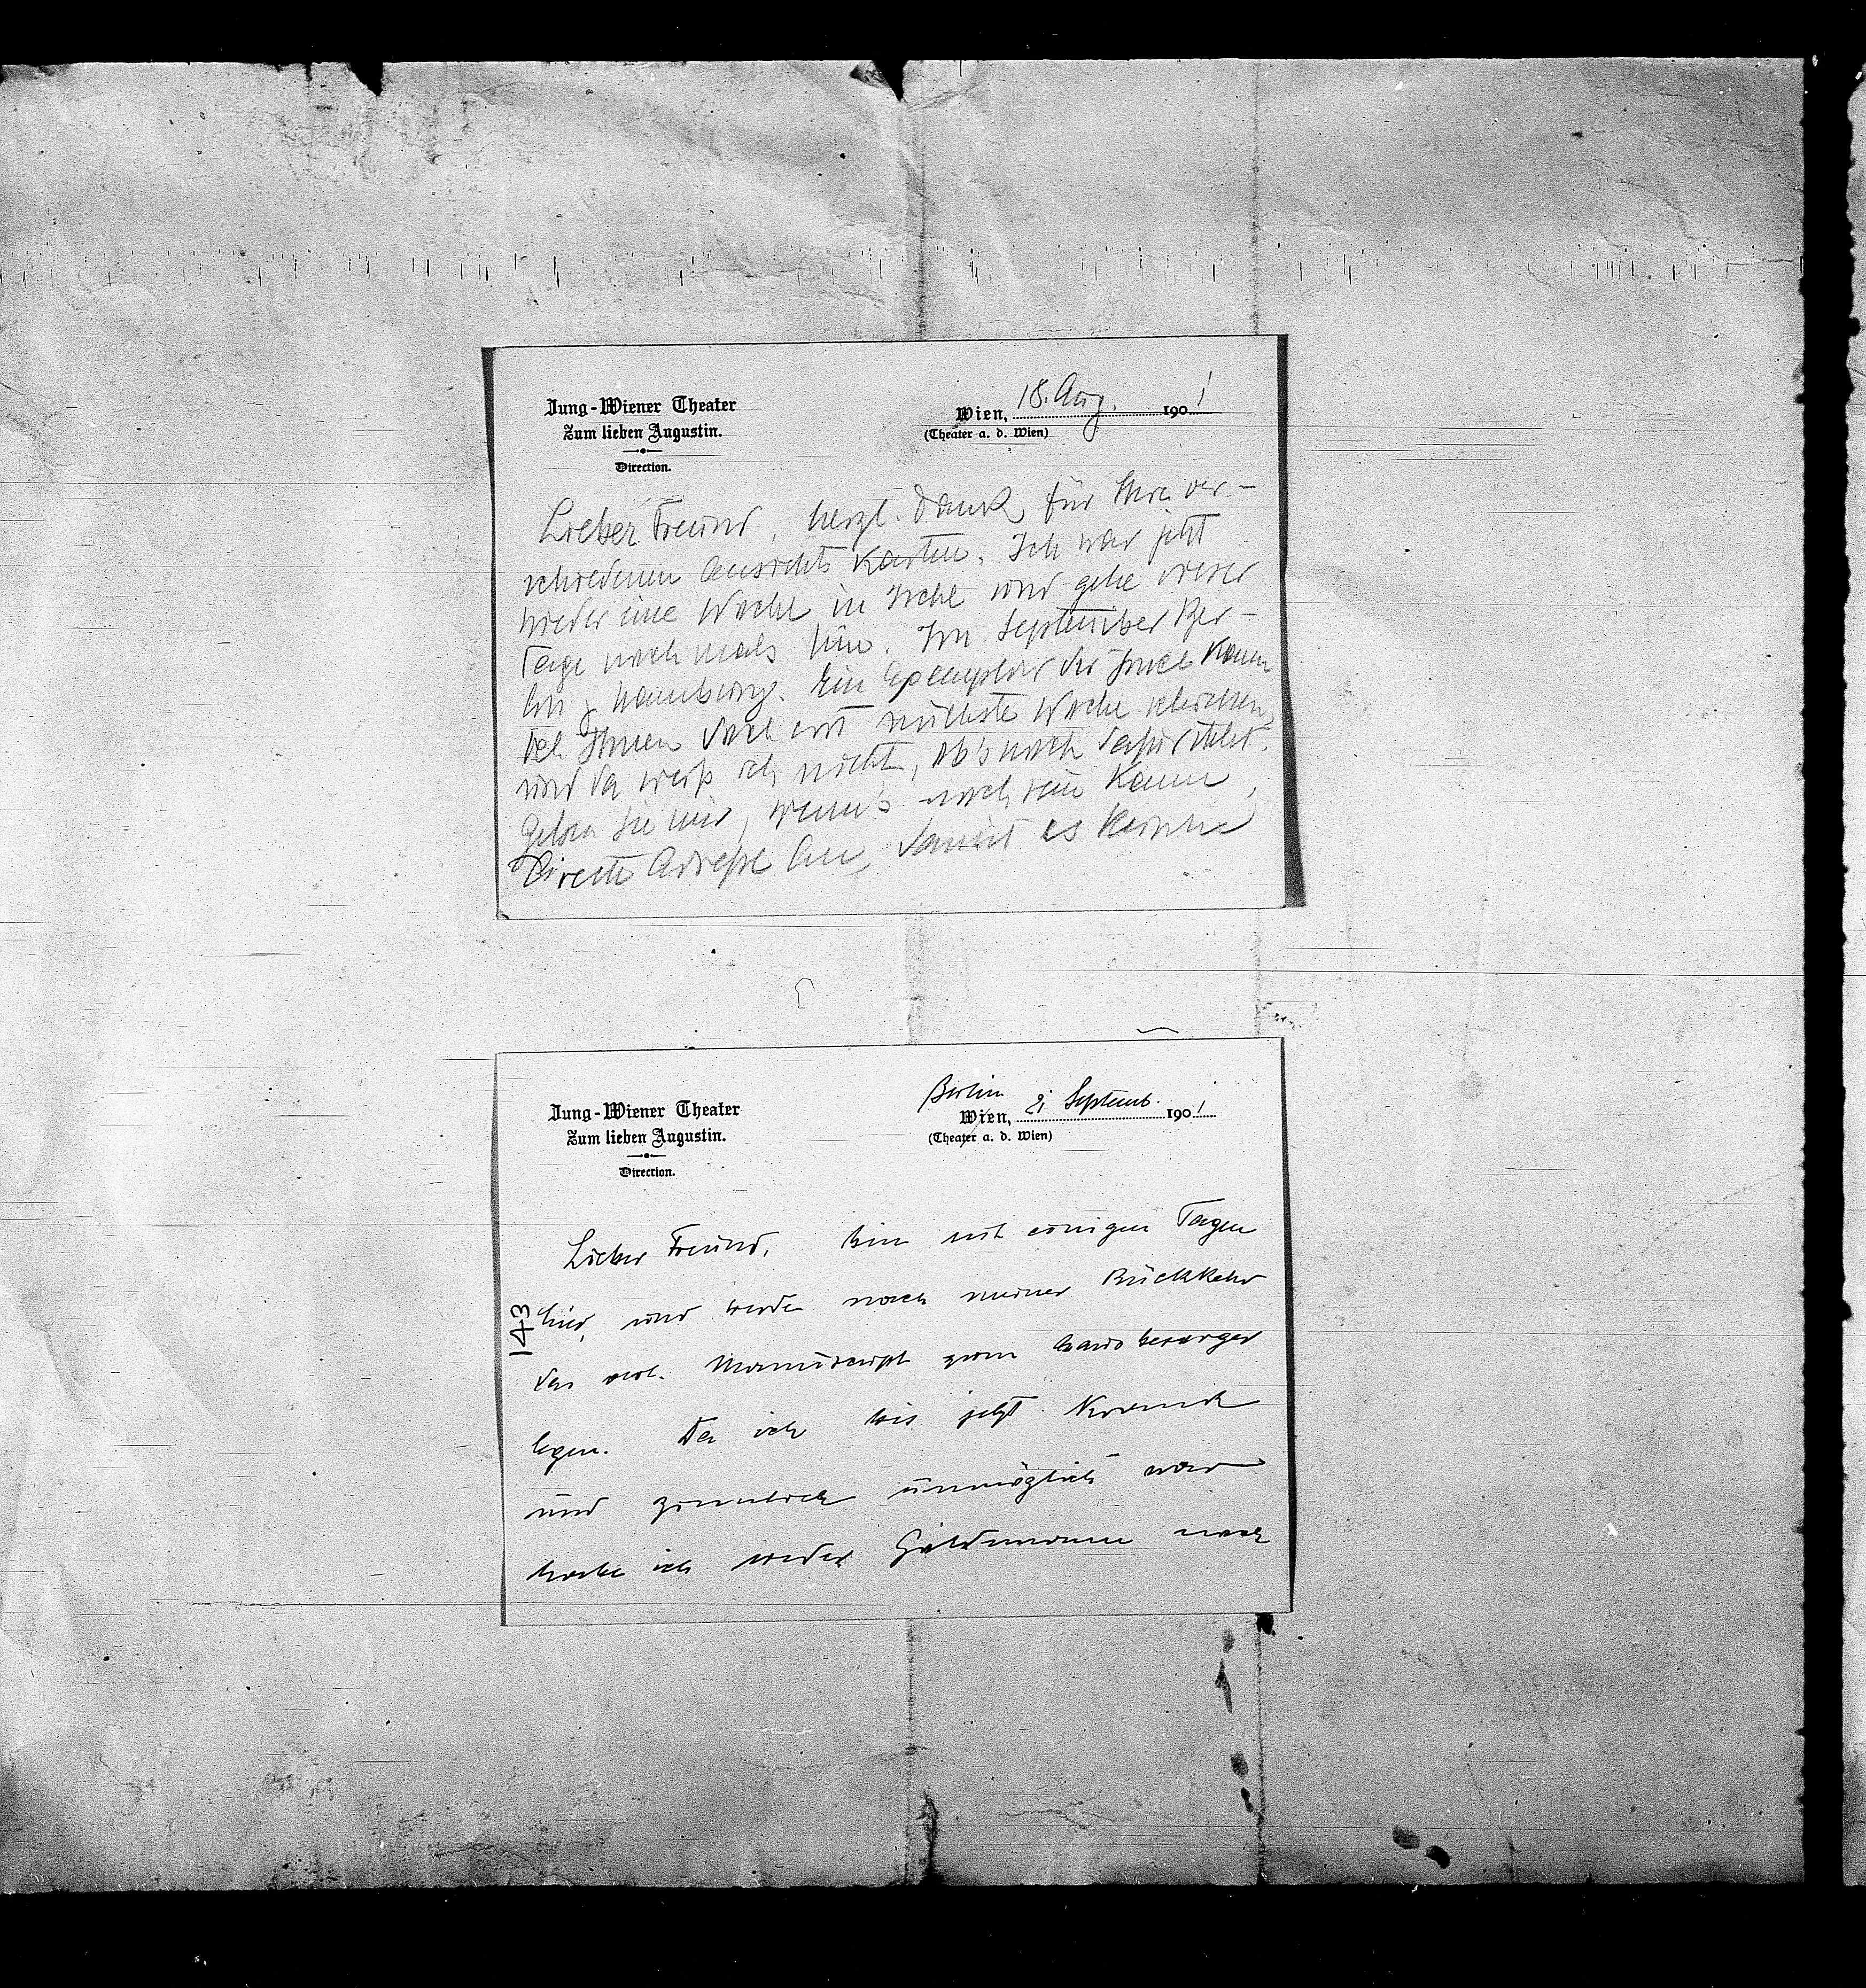 Jung-Wiener Theater
Zum lieben Augustin.
Direction.
Wien, 18. Aug. 1901
(Theater a. d. Wien)
Lieber Freund, herzl. Dank für Ihre ver-
schiedenen Ansichts Karten. Ich war jetzt
wieder eine Woche in Ischl und gehe dieser
Tage noch mals hin. Im September Ber-
lin, Hamburg. Ein Exemplar der Insel kann
ich Ihnen doch erst nächste Woche schicken,
und da weiß ich nicht, ob's noch dafür steht.
Geben Sie mir, wenn's noch sein kann,
Directe Adresse an, damit es keine
Jung-Wiener Theater
Zum lieben Augustin.
Direction.
Berlin
Wien, 2 Septemb. 1901
(Theater a. d. Wien)
143
Lieber Freund, bin seit einigen Tagen
hier, und werde nach meiner Rückkehr
das verl. Manuscript zum Hausbesorger
legen. Da ich bis jetzt krank
und ziemlich unmöglich war
habe ich weder Goldmann noch